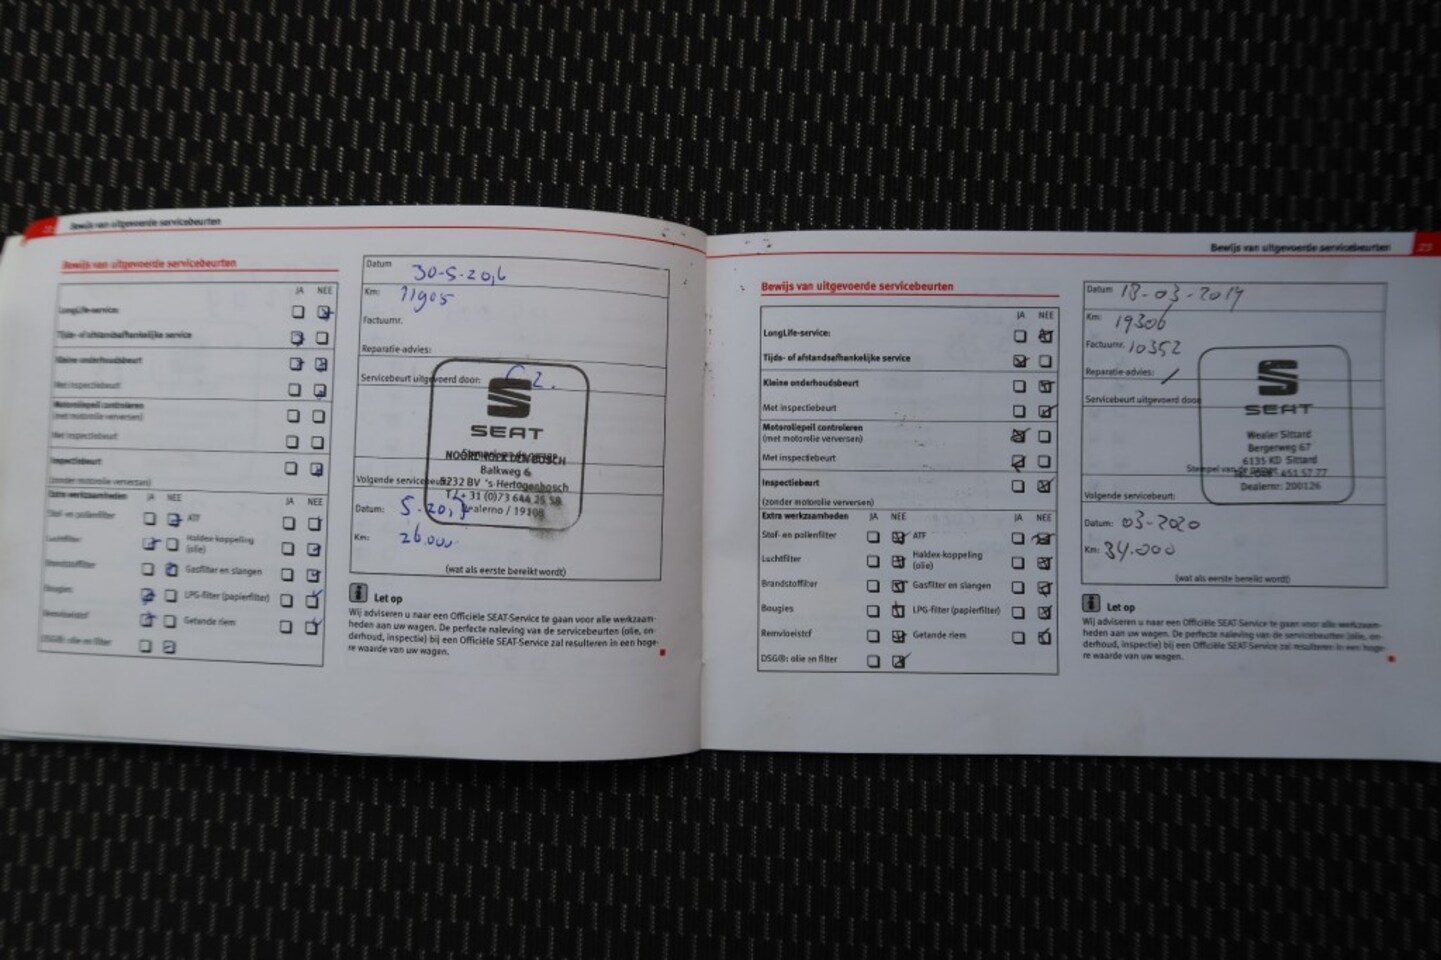 Bewijs van uitgevoerde servicebeurten
Bewijs van uitgevoerde servicebeurten
JA NEE
LongLife-service:
Tijds- of afstandsafhankelijke service
Kleine onderhoudsbeurt
Met inspectiebeurt
Motoroliepeil controleren
(met motorolie verversen)
Met inspectiebeurt
Inspectiebeurt
(zonder motorolie verversen)
Extra werkzaamheden JA NEE JA NEE
Stof- en pollenfilter ATF
Luchtfilter Haldex-koppeling
(olie)
Brandstoffilter Gasfilter en slangen
Bougies LPG-filter (papierfilter)
Remvloeistof Getande riem
DSG®: olie en filter
Datum 30-5-2016
Km: 11905
Factuurnr.
Reparatie-advies:
Servicebeurt uitgevoerd door:
SEAT
DEN BOSCH
Balkweg 6
5232 BV 's-Hertogenbosch
T / + 31 (0)73 644 25 58
Dealerno / 19108
Volgende servicebeurt:
Datum: 5-2017
Km: 26.000
(wat als eerste bereikt wordt)
i Let op
Wij adviseren u naar een Officiële SEAT-Service te gaan voor alle werkzaam-
heden aan uw wagen. De perfecte naleving van de servicebeurten (olie, on-
derhoud, inspectie) bij een Officiële SEAT-Service zal resulteren in een hoge-
re waarde van uw wagen.
Bewijs van uitgevoerde servicebeurten 23
Bewijs van uitgevoerde servicebeurten
JA NEE
LongLife-service:
Tijds- of afstandsafhankelijke service
Kleine onderhoudsbeurt
Met inspectiebeurt
Motoroliepeil controleren
(met motorolie verversen)
Met inspectiebeurt
Inspectiebeurt
(zonder motorolie verversen)
Extra werkzaamheden JA NEE JA NEE
Stof- en pollenfilter ATF
Luchtfilter Haldex-koppeling
(olie)
Brandstoffilter Gasfilter en slangen
Bougies LPG-filter (papierfilter)
Remvloeistof Getande riem
DSG®: olie en filter
Datum 18-03-2019
Km: 19306
Factuurnr. 10352
Reparatie-advies: /
Servicebeurt uitgevoerd door
SEAT
Wealer Sittard
Bergerweg 67
6135 KD Sittard
Stempel van de
451 57 77
Dealernr: 200126
Volgende servicebeurt:
Datum: 03-2020
Km: 34.000
(wat als eerste bereikt wordt)
i Let op
Wij adviseren u naar een Officiële SEAT-Service te gaan voor alle werkzaam-
heden aan uw wagen. De perfecte naleving van de servicebeurten (olie, on-
derhoud, inspectie) bij een Officiële SEAT-Service zal resulteren in een hoge-
re waarde van uw wagen.